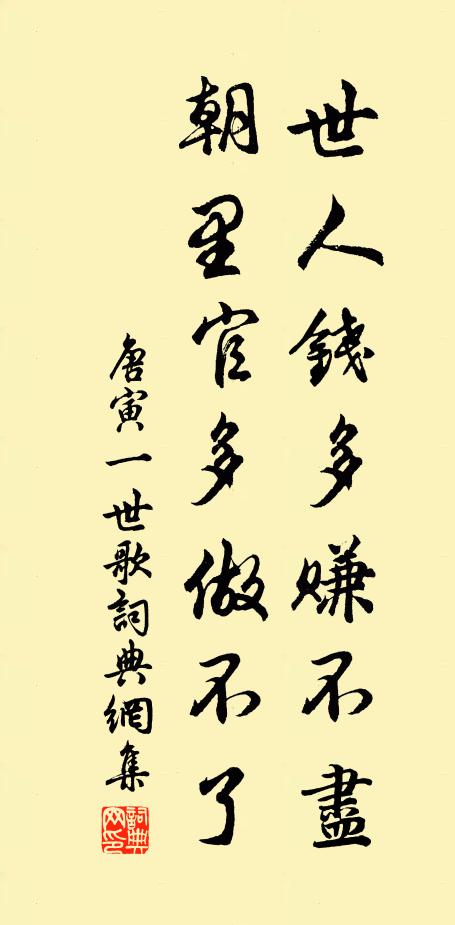 世人錢多賺不盡
朝里官多做不了
唐寅一世歌詞典網集
詞典網印